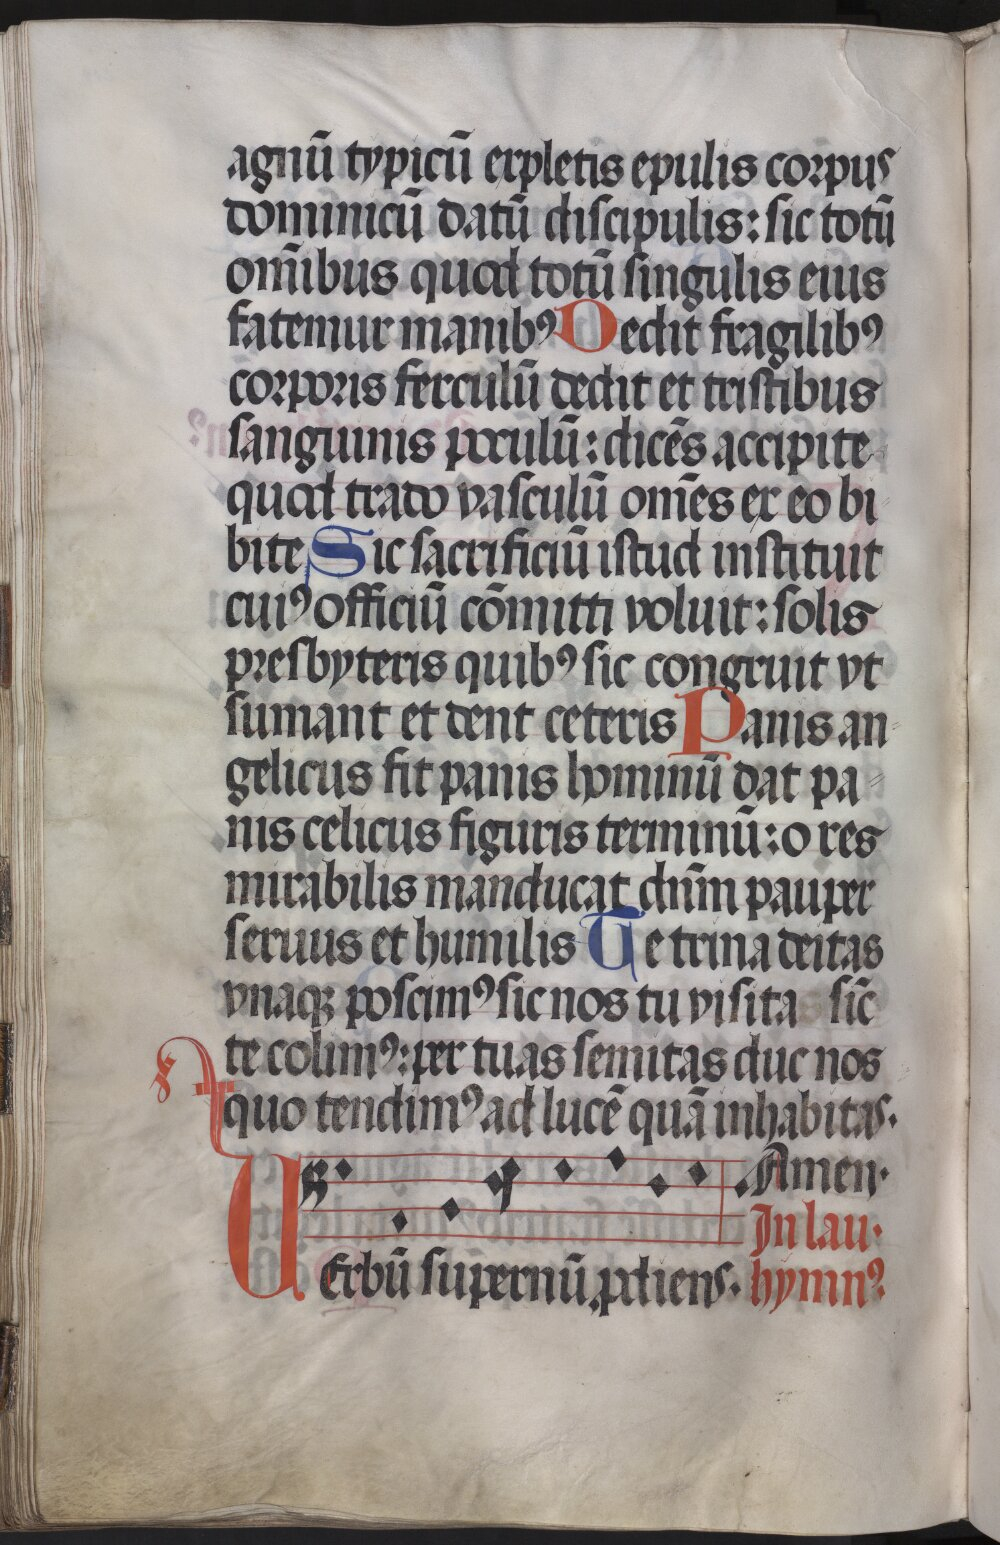 agnū typicū expletis epulis corpus
dominicū datū discipulis: sic totū
om̄ibus quod totū singulis eius
fatemur manibꝰ Dedit fragilibꝰ
corporis ferculū dedit et tristibus
sanguinis poculū: dicēs accipite
quod trado vasculū om̄es ex eo bi
bite Sic sacrificiū istud instituit
cuiꝰ officiū cōmitti voluit: solis
presbyteris quibꝰ sic congruit vt
sumant et dent ceteris Panis an
gelicus fit panis hominū dat pa
nis celicus figuris terminū: o res
mirabilis manducat dn̄m pauper
seruus et humilis Te trina deitas
vnaqꝫ poscimꝰ sic nos tu visita sic̄
te colimꝰ: per tuas semitas duc nos
quo tendimꝰ ad lucē quā inhabitas.
Amen.
In lau.
VErbū supernū ꝓdiens. hymnꝰ